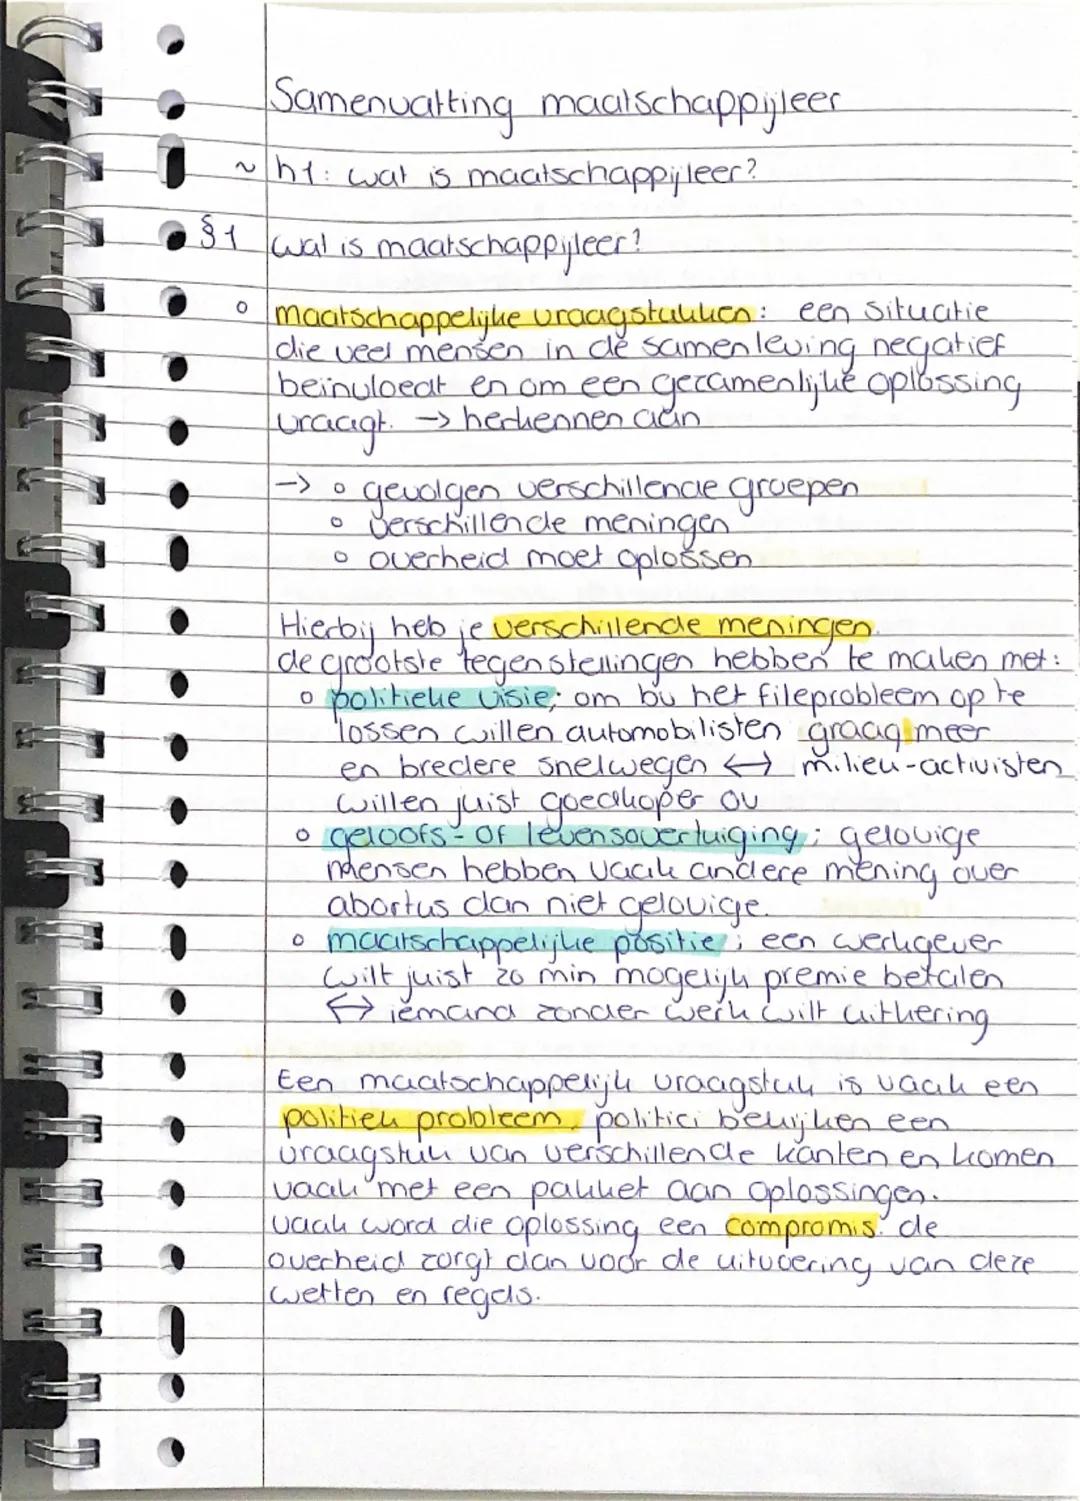 Samenvatting maatschappijleer
~ h1: wat is maatschappijleer?
§1 wat is maatschappijleer?
o maatschappelijke vraagstukken: een situatie
die veel mensen in de samenleving negatief
beïnvloedt en om een gezamenlijke oplossing
vraagt. → herkennen aan
→ o gevolgen verschillende groepen
o verschillende meningen
o overheid moet oplossen
Hierbij heb je verschillende meningen.
de grootste tegenstellingen hebben te maken met:
o politieke visie; om bv het fileprobleem op te
lossen willen automobilisten graag meer
en bredere snelwegen ↔ milieu-activisten
willen juist goedkoper ov
o geloofs- of levensovertuiging; gelovige
mensen hebben vaak andere mening over
abortus dan niet gelovige.
o maatschappelijke positie; een werkgever
wilt juist zo min mogelijk premie betalen
↔ iemand zonder werk wilt uitkering
Een maatschappelijk vraagstuk is vaak een
politiek probleem, politici bekijken een
vraagstuk van verschillende kanten en komen
vaak met een pakket aan oplossingen.
vaak word die oplossing een compromis. de
overheid zorgt dan voor de uitvoering van deze
wetten en regels.